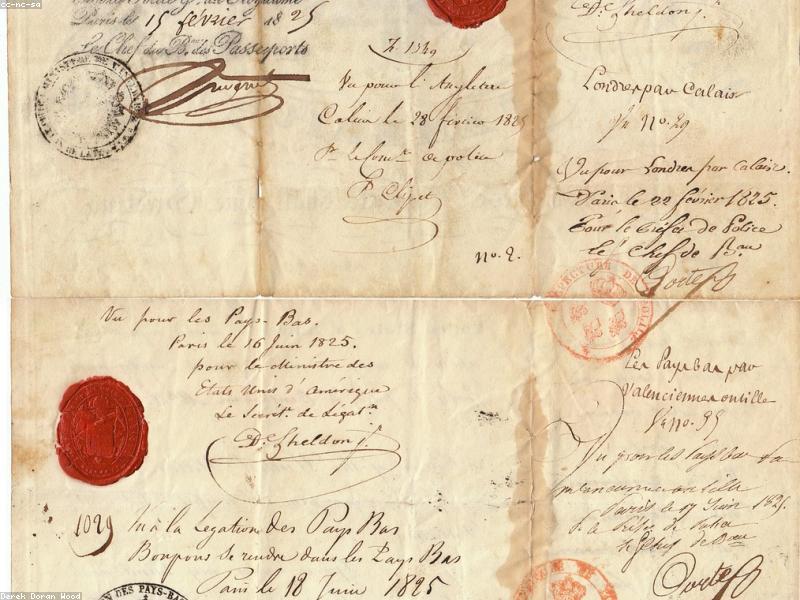 cc-nc-sa
Paris le 15 février 1825
Le Chef du B.au des Passeports
N 1349
Vu pour l'Angleterre
Calais le 28 février 1825
Pr le Com.re de police
No. 2.
D. Sheldon Jr.
Londres par Calais
Vu No. 29
Vu pour Londres par Calais.
Paris le 22 février 1825.
Pour le Préfet de Police
le Chef de Bau
Porte
PRÉFECTURE DE POLICE
Vu pour les Pays-Bas.
Paris le 16 Juin 1825.
pour le Ministre des
Etats Unis d'Amérique
Le Secrét. de Légatn
D. Sheldon Jr.
1029 Vu à la Légation des Pays Bas
Bon pour se rendre dans les Pays Bas
Paris le 18 Juin 1825
ON DES PAYS-BA
Les Pays bas par
Valenciennes ou Lille
Vu pour les Pays bas
Valenciennes ou Lille
Paris le 17 Juin 1825.
le Chef de Bau
Porte
Derek Doran Wood